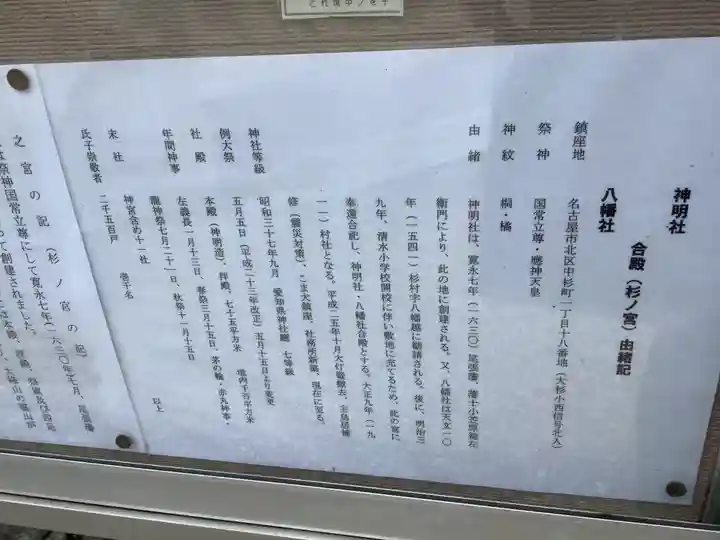 神明社
合殿(杉ノ宮)由緒記
八幡社
鎮座地 名古屋市北区中杉町一丁目十八番地(大杉小西信号北入)
祭神 国常立尊・應神天皇
神紋 桐・橘
由緒 神明社は、寛永七年(一六三〇)尾張藩、藩士小笠原
衛門により、此の地に創建される。又、八幡社は天文一〇
年(一五四一)杉村字八幡越に勧請される。後に、明治三
九年、清水小学校開校に伴い敷地に充てるため、此の宮に
奉遷合祀し、神明社・八幡社合殿とする。大正九年(一九
二〇)村社となる。平成二五年十月大灯籠撤去、玉垣
修(震災対策)、こま犬鎮座、社務所新築、現在に至る。
神社等級 昭和三十七年九月 愛知県神社廳 七等級
例大祭 五月五日(平成二十三年改正)五月十五日より変更
社殿 本殿(神明造)、拝殿、七十五平方米 境内千百平方米
年間神事 左義長一月十三日、春祭三月十五日、茅の輪、赤丸神事・
龍神祭七月二十一日、秋祭十一月十五日
末社 神宮含め十一社
氏子崇敬者 二千五百戸 壱千名
以上
之宮の記(杉ノ宮の記)
は祭神国常立尊にして寛永七年(一六三〇年)七月、尾張藩
って創建されました。